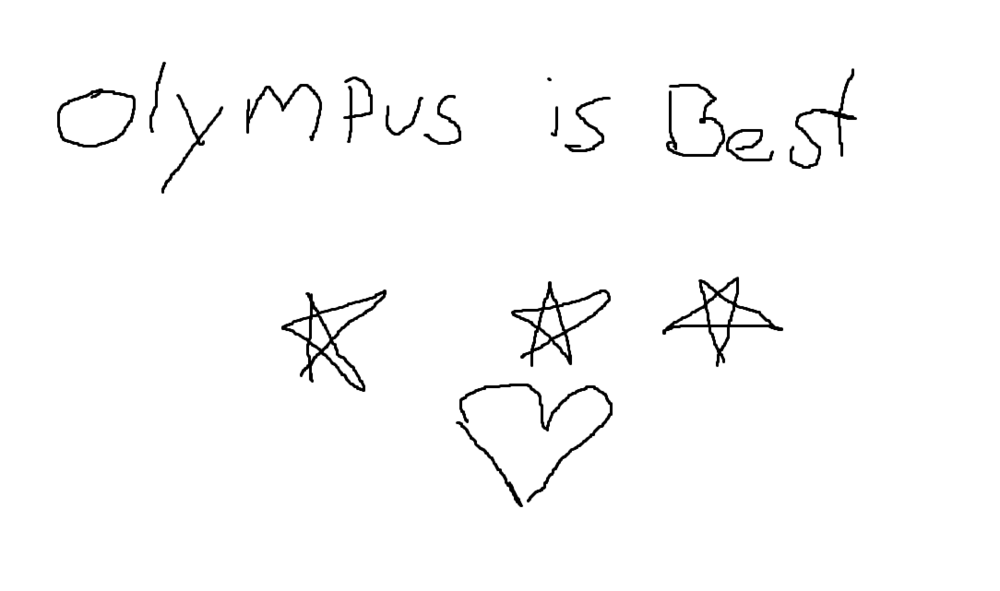 Olympus is Best